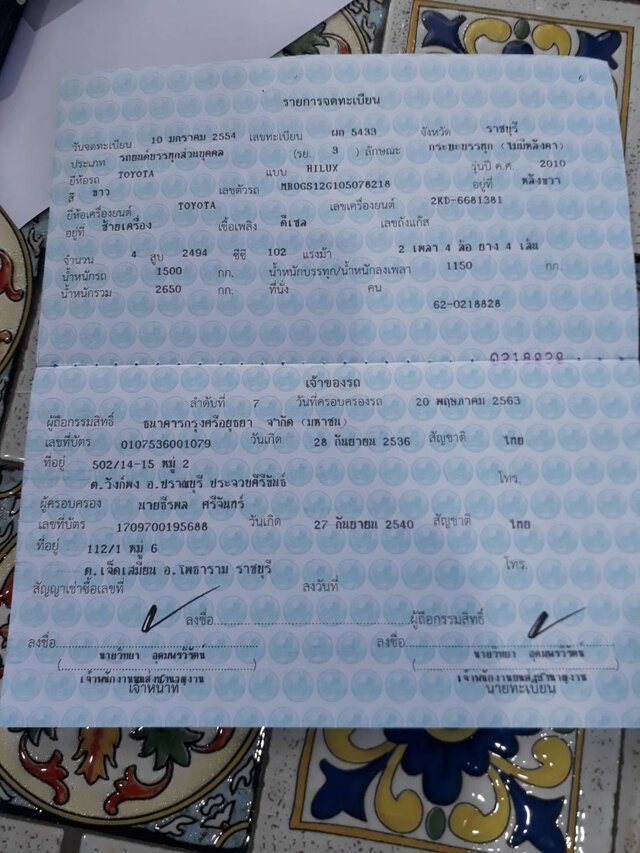 รายการจดทะเบียน
วันจดทะเบียน 10 มกราคม 2554 เลขทะเบียน ผก 5433 จังหวัด ราชบุรี
ประเภท รถยนต์บรรทุกส่วนบุคคล (รย. 3 ) ลักษณะ กระบะบรรทุก (ไม่มีหลังคา)
ยี่ห้อรถ TOYOTA แบบ HILUX รุ่นปี ค.ศ. 2010
สี ขาว เลขตัวรถ MR0GS12G105078218 อยู่ที่ หลังขวา
ยี่ห้อเครื่องยนต์ TOYOTA เลขเครื่องยนต์ 2KD-6681381
อยู่ที่ ซ้ายเครื่อง เชื้อเพลิง ดีเซล เลขถังแก๊ส
จำนวน 4 สูบ 2494 ซีซี 102 แรงม้า 2 เพลา 4 ล้อ ยาง 4 เส้น
น้ำหนักรถ 1500 กก. น้ำหนักบรรทุก/น้ำหนักลงเพลา 1150 กก.
น้ำหนักรวม 2650 กก. ที่นั่ง คน
62-0218828
0218828
เจ้าของรถ
ลำดับที่ 7 วันที่ครอบครองรถ 20 พฤษภาคม 2563
ผู้ถือกรรมสิทธิ์ ธนาคารกรุงศรีอยุธยา จำกัด (มหาชน)
เลขที่บัตร 0107536001079 วันเกิด 28 กันยายน 2536 สัญชาติ ไทย
ที่อยู่ 502/14-15 หมู่ 2
ต.วังก์พง อ.ปราณบุรี ประจวบคีรีขันธ์ โทร.
ผู้ครอบครอง นายธีรพล ศรีจันทร์
เลขที่บัตร 1709700195688 วันเกิด 27 กันยายน 2540 สัญชาติ ไทย
ที่อยู่ 112/1 หมู่ 6
ต.เจ็ดเสมียน อ.โพธาราม ราชบุรี โทร.
สัญญาเช่าซื้อเลขที่ ลงวันที่
ลงชื่อ ผู้ถือกรรมสิทธิ์
ลงชื่อ ลงชื่อ
นายวิทยา อุดมพรวิรัตน์ นายวิทยา อุดมพรวิรัตน์
เจ้าพนักงานขนส่งชำนาญงาน เจ้าพนักงานขนส่งชำนาญงาน
เจ้าหน้าที่ นายทะเบียน